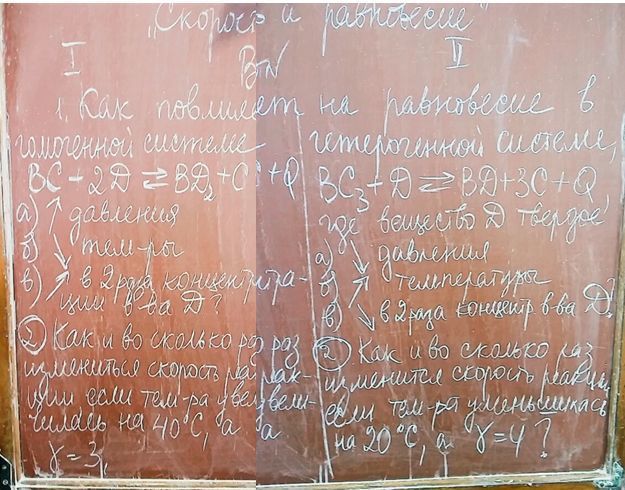 "Скорость и равновесие"
I
II
1. Как повлияет на равновесие в
гомогенной системе
BC + 2D ⇄ BD₂ + C + Q
а) ↑ давления
б) ↓ тем-ры
в) ↑ в 2 раза концентра-
ции в-ва D?
② Как и во сколько раз
измениться скорость реак-
ции если тем-ра увели-
чилась на 40°C, а
γ = 3,
гетерогенной системе,
BC₃ + D ⇄ BD + 3C + Q
где вещество D твердое
а) ↓ давления
б) ↑ температуры
в) ↓ в 2 раза концентр в-ва D?
② Как и во сколько раз
изменится скорость реакции
если тем-ра уменьшилась
на 20°C, а γ = 4?